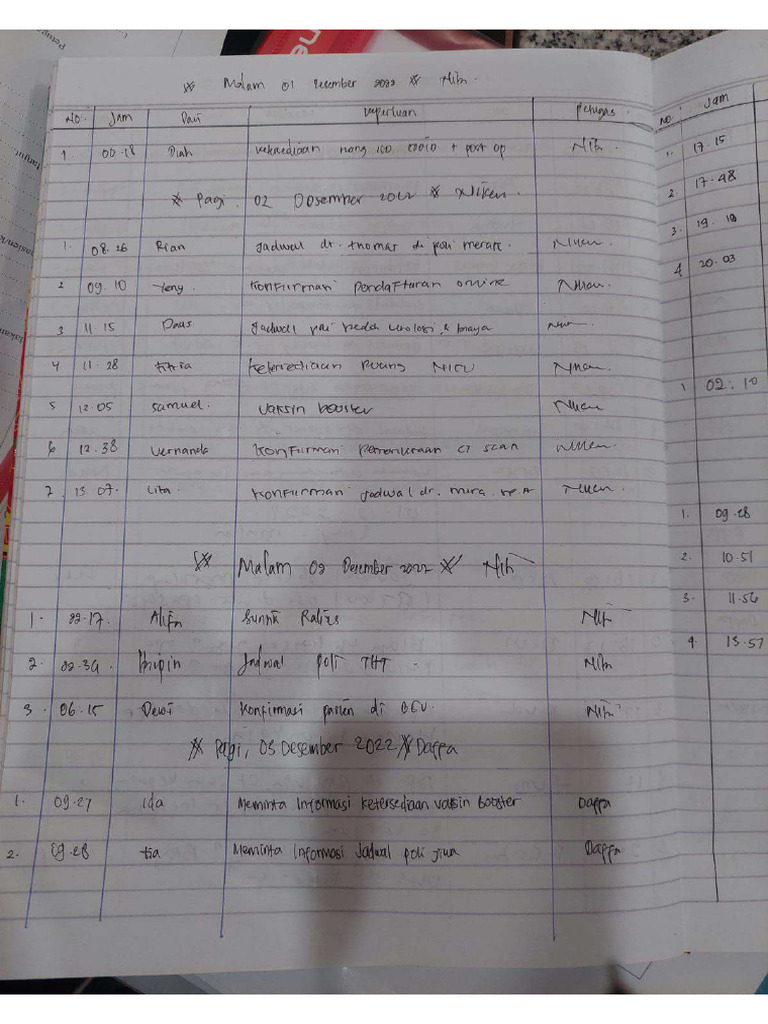 Malam 01 Desember 2022
No. Jam Dari keperluan Petugas
1. 00.18 Diah ketersediaan ruang + post op
* Pagi. 02 Desember 2022 * Niken.
1. 08.26 Rian Jadwal dr. Thomas di poli Niken
2 09.10 Yeny. Konfirmasi Pendaftaran online Niken.
3 11.15 Jadwal poli bedah urologi & biaya Niken.
4 11.28 Fitria Ketersediaan Ruang NICU Niken.
5 12.05 Samuel. vaksin booster Niken
6 12.38 Vernanda Konfirmasi Pemeriksaan CT Scan Niken.
7 13.07. Lita. Konfirmasi Jadwal dr. Mira. Sp.A Niken.
Malam 02 Desember 2022
1. 22.17. Sunnik Rabies
2. Jadwal poli THT
3 06.15 Dewi Konfirmasi pasien di
* Pagi, 03 Desember 2022 * Daffa
1. 09.27 Ida Meminta Informasi Ketersediaan vaksin booster Daffa
2. 09.28 tia Meminta Informasi Jadwal poli jiwa Daffa
No. Jam
1. 17.15
2. 17.48
3. 19.19
4 20.03
1 02.10
1. 09.28
2. 10.51
3. 11.56
4. 13.57